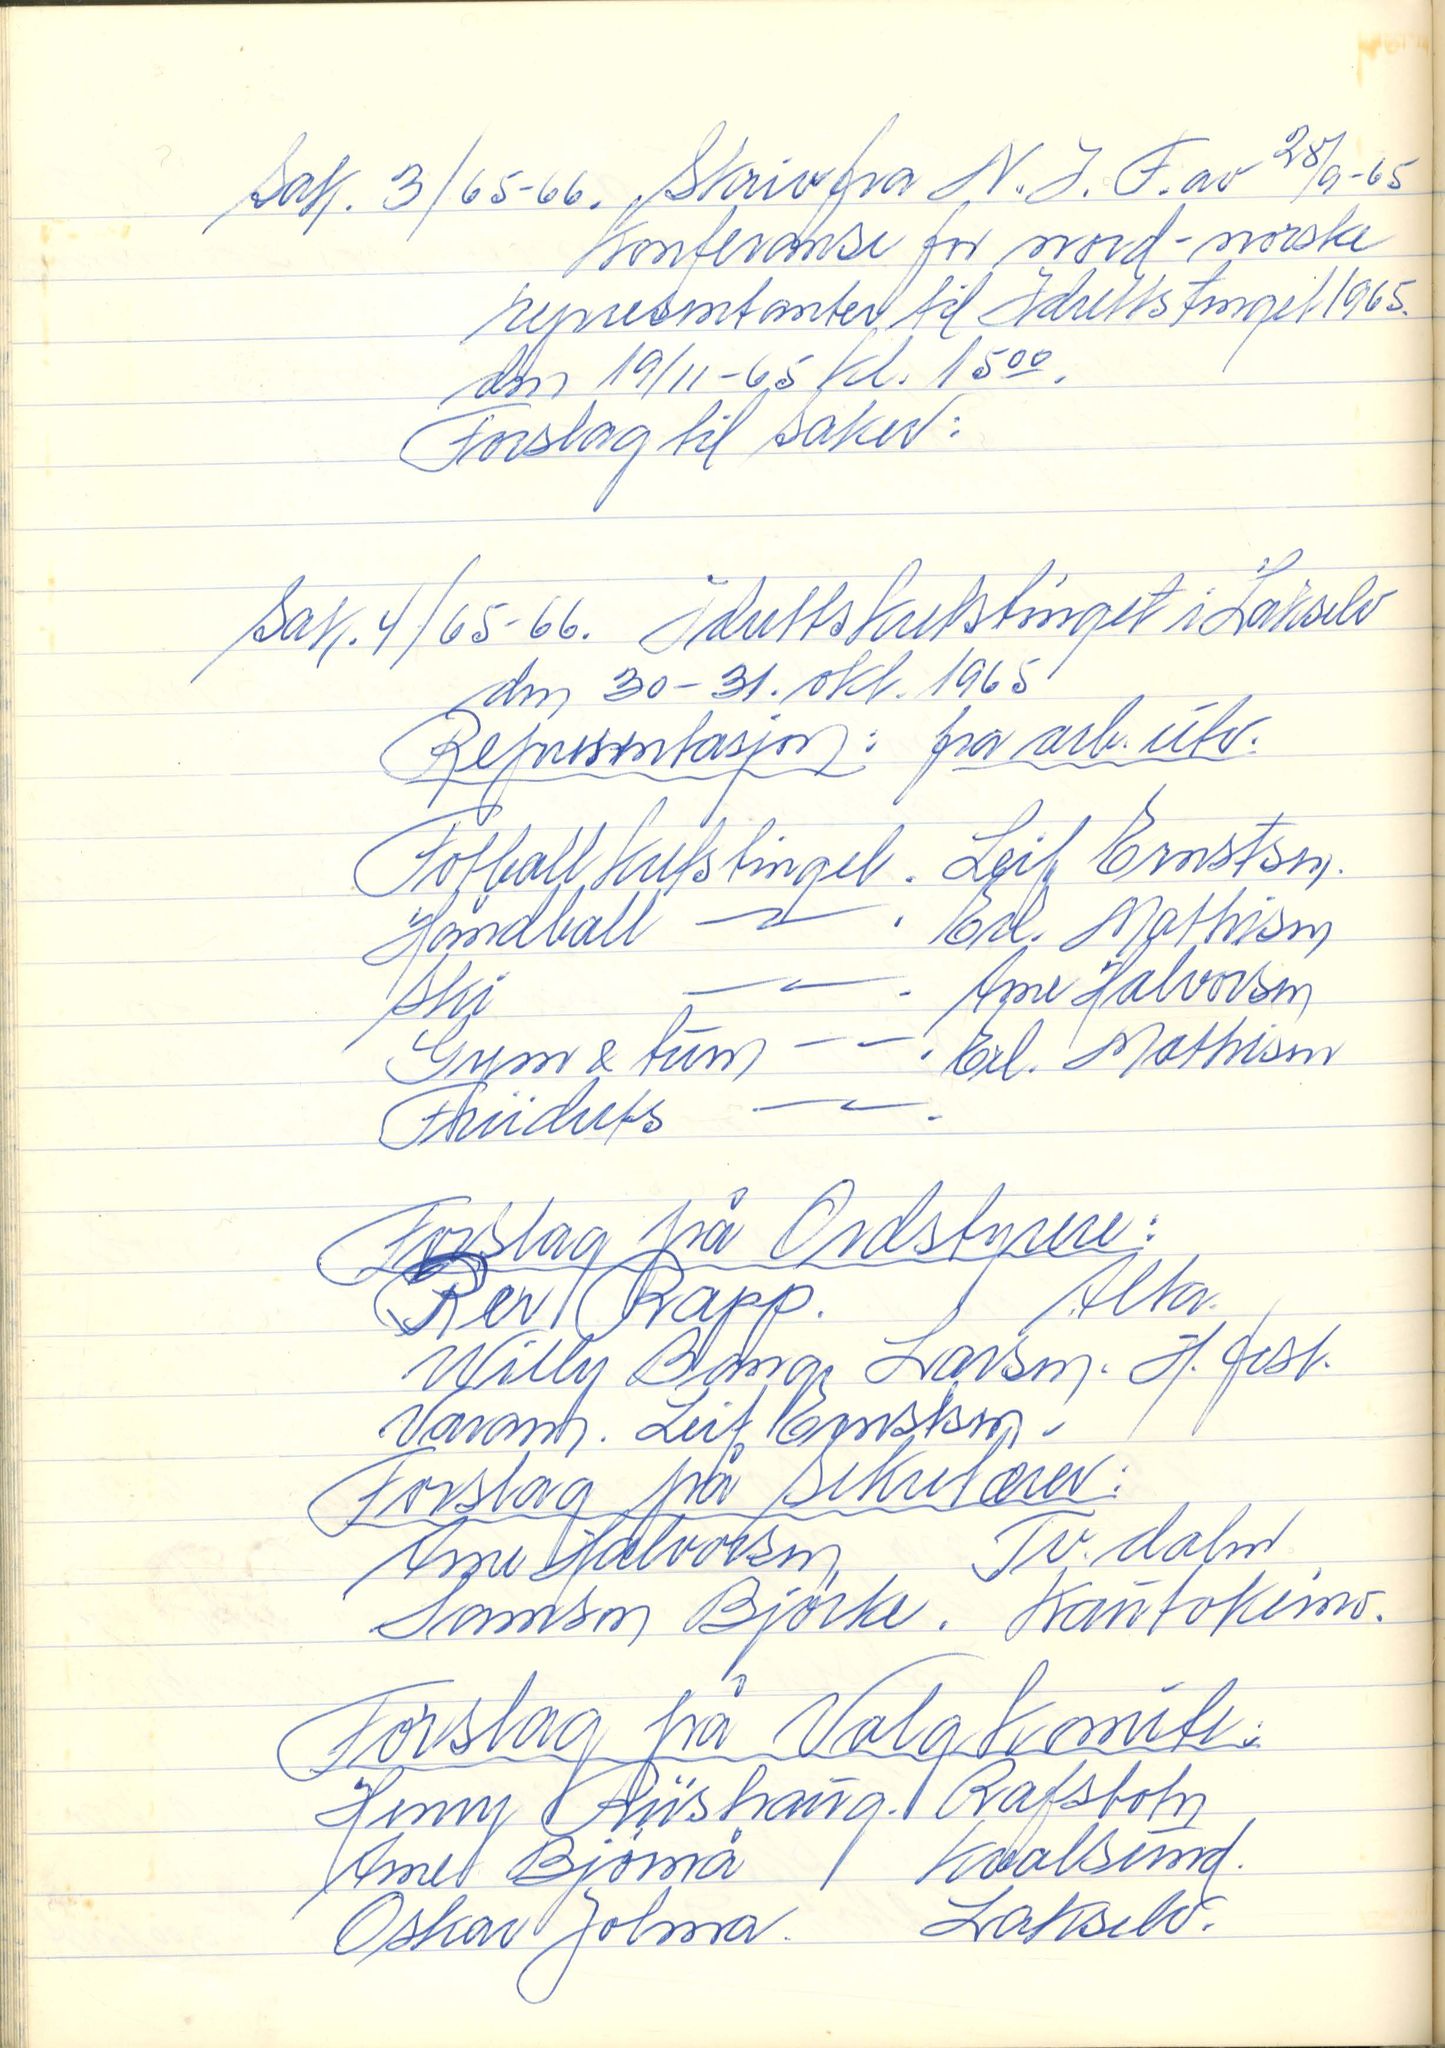 Sak. 3/65-66. Skriv fra N.I.F. av 28/9-65
Konferanse for nord-norske
representanter til Idrettstinget 1965.
den 19/11-65 kl. 15⁰⁰.
Forslag til saker:
Sak. 4/65-66. Idrettskretstinget i Lakselv
den 30-31. okt. 1965
Representasjon: fra arb. utv.
Fotballkretstinget. Leif Ernstsen.
Håndball —"— . Erl. Mathisen
Ski —"— . Arne Halvorsen
Gym & turn — — . Erl. Mathisen
Friidrets —"— .
Forslag på Ordstyrere:
Rapp. Alta.
Willy Bang Larsen. H.fest.
Varam. Leif Ernstsen.
Forslag på Sekretærer:
Arne Halvorsen Tv. dalen
Samson Bjørke. Kautokeino.
Forslag på Valgkomite:
Henny Riishaug. Rafsbotn
Arne Bjørnå Kvalsund.
Oskar Jolma. Lakselv.